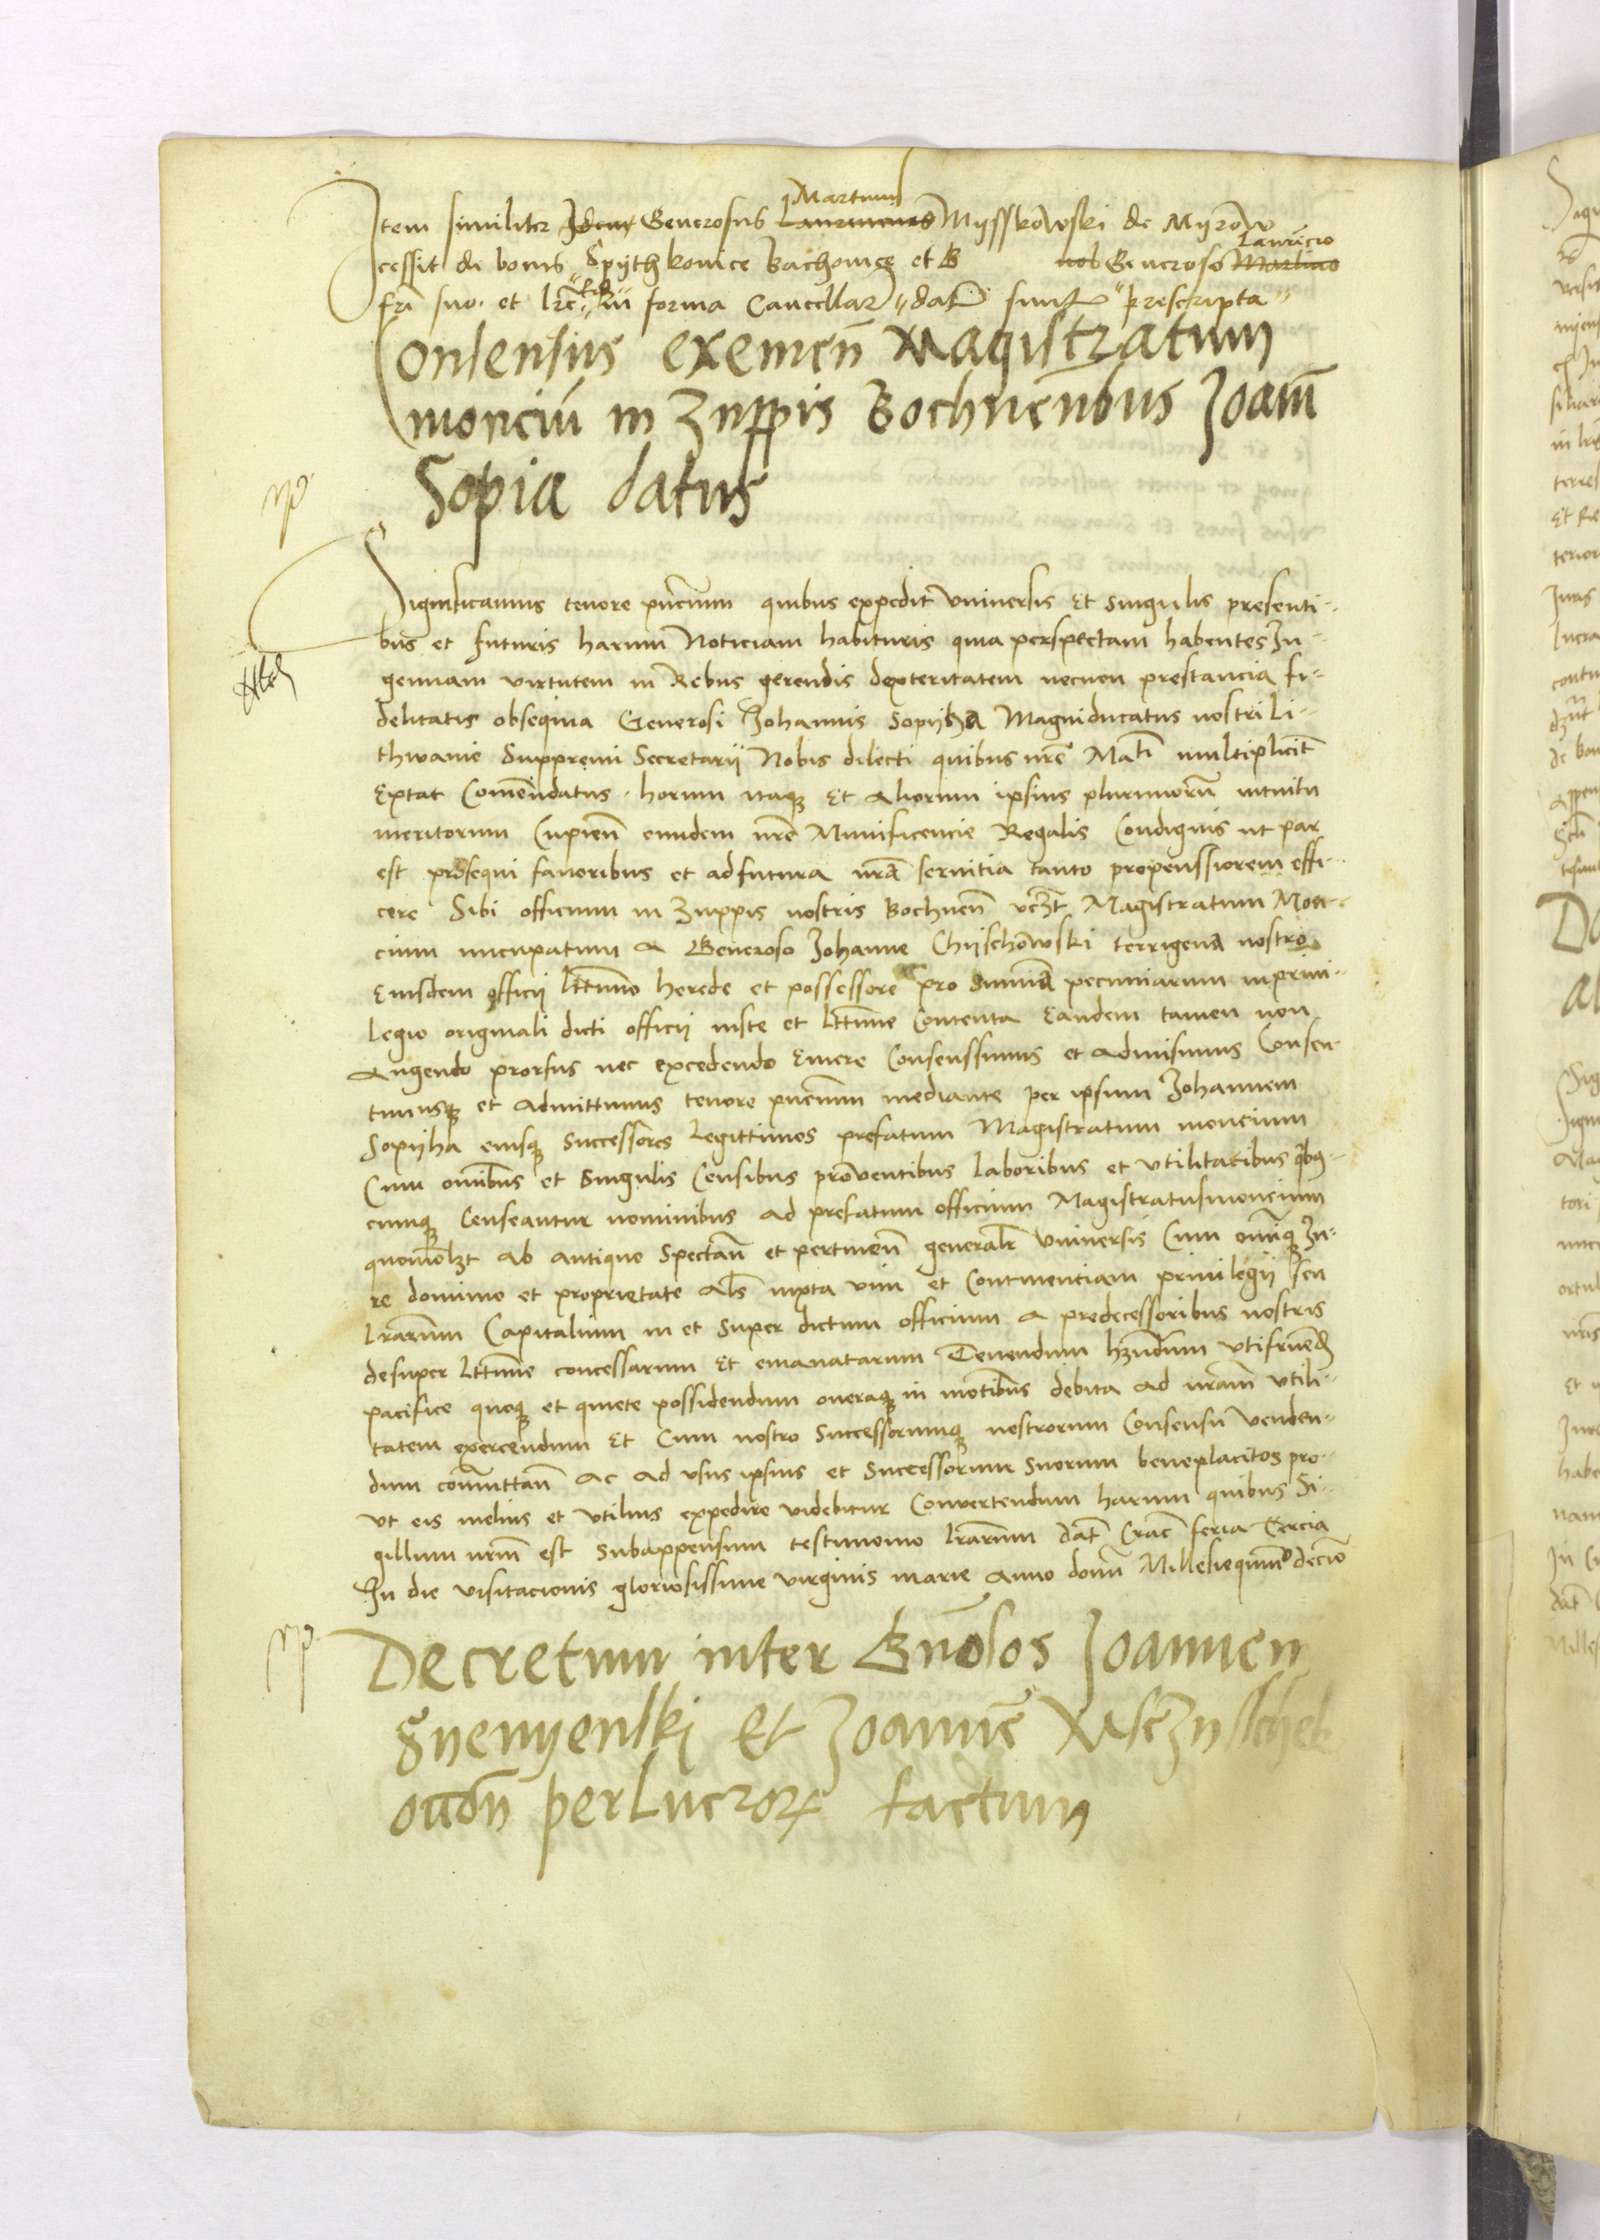 Martinus
Item similiter Idem Generosus Laurencius Myſſkowſki de Myrow
Laurēcio
cessit de bonis Spythkovice Bachovice et B nob Generoso Martino
fri suo. et lre in forma Cancellar dat sunt prescripta
Consensus exemen̄ Magistratum
monciū in Zuppis Bochnen̄bus Joann̄
Sopia datus
Significamus tenore pn̄cium quibus expedit Universis Et singulis presenti-
bus et futuris harum Noticiam habituris quia perspectam habentes In-
genuam virtutem in Rebus gerendis dexteritatem necnon prestancia fi-
delitatis obsequia Generosi Johannis Sopyha Magniducatus nostri Li-
thwanie Suppremi Secretarii Nobis dilecti quibus nr̄e Mati multiplicit̄
Extat Comēndatus. horum itaq et Aliorum ipsius plurimorū intuitu
meritorum Cupien̄ eundem nr̄e Munificencie Regalis Condignis ut par
est prosequi favoribus et ad futura nr̄a servitia tanto propenssiorem effi-
cere Sibi officium in Zuppis nostris Bochnen̄ vczt Magistratum Mon-
cium nuncupatum A Generoso Johanne Chyschowski terrigena nostro
Eiusdem officii lttimo herede et possessore pro summa pecuniarum in privi-
legio originali dicti officii iuste et lttime Contenta Eandem tamen non
Augendo prorsus nec excedendo Emere Consenssimus et Admisimus Consen-
timusq et Admittimus tenore pn̄cium mediante per ipsum Johannem
Sopyha eiusq Successores Legittimos prefatum Magistratum moncium
Cum omībus et Singulis Censibus proventibus Laboribus et Utilitatibus qbus-
cumq Censeantur nominibus Ad prefatum officium Magistratusmoncium
quomōlzt Ab Antiquo Spectan̄ et pertinen̄ generalr Universis Cum omīq Iu-
re dominio et proprietate Als iuxta vim et Continentiam privilegii seu
lrarum Capitalium in et super dictum officium A predecessoribus nostris
desuper lttime concessarum Et emanatarum Tenendum hn̄dum Utifruend
pacifice quoq et quiete possidendum oneraq in montibus debita Ad nr̄am Utili-
tatem exercendum Et Cum nostro Successorumq nostrorum Consensu Venden-
dum com̄uttan̄ Ac Ad usus ipsius et Successorum Suorum beneplacitos pro-
ut eis melius et Utilius expedire videbitur Convertendum harum quibus Si-
gillum nrm̄ est Subappensum testimonio lrarum dat Crac̄ feria Tercia
In die visitacionis gloriosissime virginis marie Anno domī Millesiequin̄odecīo
Decretum inter Gn̄osos Joannen
Gnenyenski Et Joannē Msczuschek
ouōn per Lucror factum